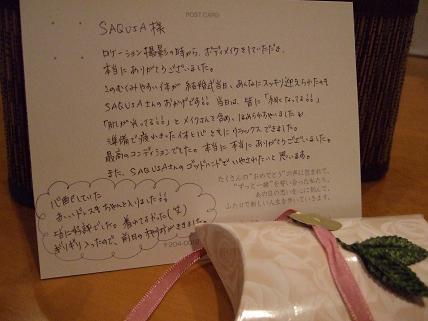 POST CARD
SAQUSA 様
ロケーション撮影の時から、ボディメイクをしていただき、
本当にありがとうございました。
このむくみやすい体が 結婚式当日、あんなにスッキリ迎えられたのも
SAQUSAさんのおかげです!! 当日は、皆に「
てる!!」
「肌が
てる!!」とメイクさん含め、ほめられちゃいました
準備で疲れきった体と心 ともにリラックスできました。
最高のコンディションでした。本当に本当にありがとうございました。
また、SAQUSAさんのゴッドハンドでいやされたいと思います。
たくさんの“おめでとう”の声に包まれて、
“ずっと一緒”を誓い合った私たち。
あの日の思いを心に刻んで、
ふたりで新しい人生を歩いていきます。
心配していた
あ
ドレスもちゃんと入りました!!
に好評でした。着れてよかった(笑)
ぎりぎり入ったので、前日の
きました。
〒204-00